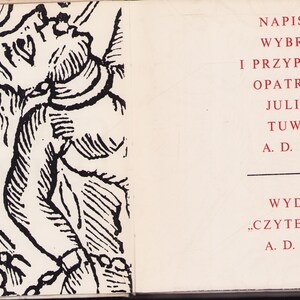 NAPIS
WYBR
I PRZYP
OPATR
JULI
TUW
A. D.
WYD
„CZYTE
A. D.